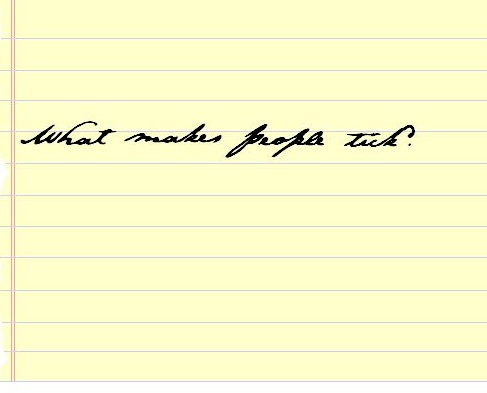 What makes people tick?